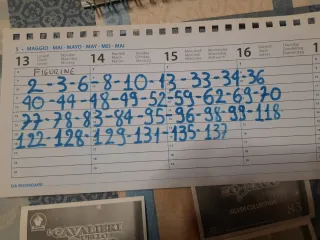 5 - MAGGIO - MAI - MAYO - MAY - MEI - MAI
13 14 15 16
FIGURINE
2-3-6-8-10-13-33-34-36
40-44-48-49-52-59-62-69-70
77-78-83-84-95-96-98-99-118
122-128-129-131-135-137
CAVALIERI
SILVER COLLECTION
83